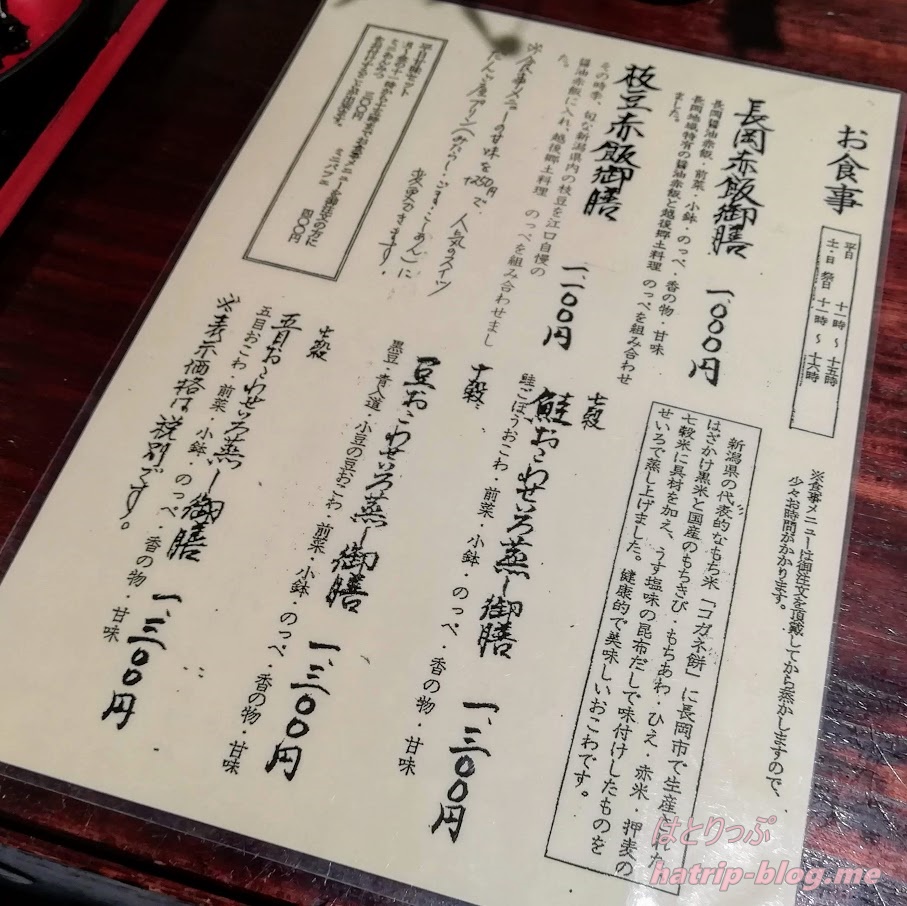 お食事
平日 十一時～十五時
土・日・祭日 十一時～十六時
※食事メニューは御注文を頂戴してから蒸かしますので、
少々お時間がかかります。
長岡赤飯御膳 一、〇〇〇円
長岡醤油赤飯・前菜・小鉢・のっぺ・香の物・甘味
長岡地域特有の醤油赤飯と越後郷土料理 のっぺを組み合わせ
ました。
枝豆赤飯御膳 一、一〇〇円
その時季、旬な新潟県内の枝豆を江口自慢の
醤油赤飯に入れ、越後郷土料理 のっぺを組み合わせまし
た。
※食事メニューの甘味を
+250円で、人気のスイーツ
だんご屋プリン(みたらし・ごま・こしあん)に
変更できます。
平日甘味セット
月～金の十一時から
三〇〇円
ミニパフェ 四〇〇円
新潟県の代表的なもち米「コガネ餅」に長岡市で生産された
はざかけ黒米と国産のもちきび・もちあわ・ひえ・赤米・押麦の
七穀米に具材を加え、うす塩味の昆布だしで味付けしたものを
せいろで蒸し上げました。健康的で美味しいおこわです。
七穀
鮭おこわせいろ蒸し御膳 一、三〇〇円
鮭ごぼうおこわ・前菜・小鉢・のっぺ・香の物・甘味
七穀
豆おこわせいろ蒸し御膳 一、三〇〇円
黒豆・青入道・小豆の豆おこわ・前菜・小鉢・のっぺ・香の物・甘味
七穀
五目おこわせいろ蒸し御膳 一、三〇〇円
五目おこわ・前菜・小鉢・のっぺ・香の物・甘味
※表示価格は税別です。
はとりっぷ
hatrip-blog.me